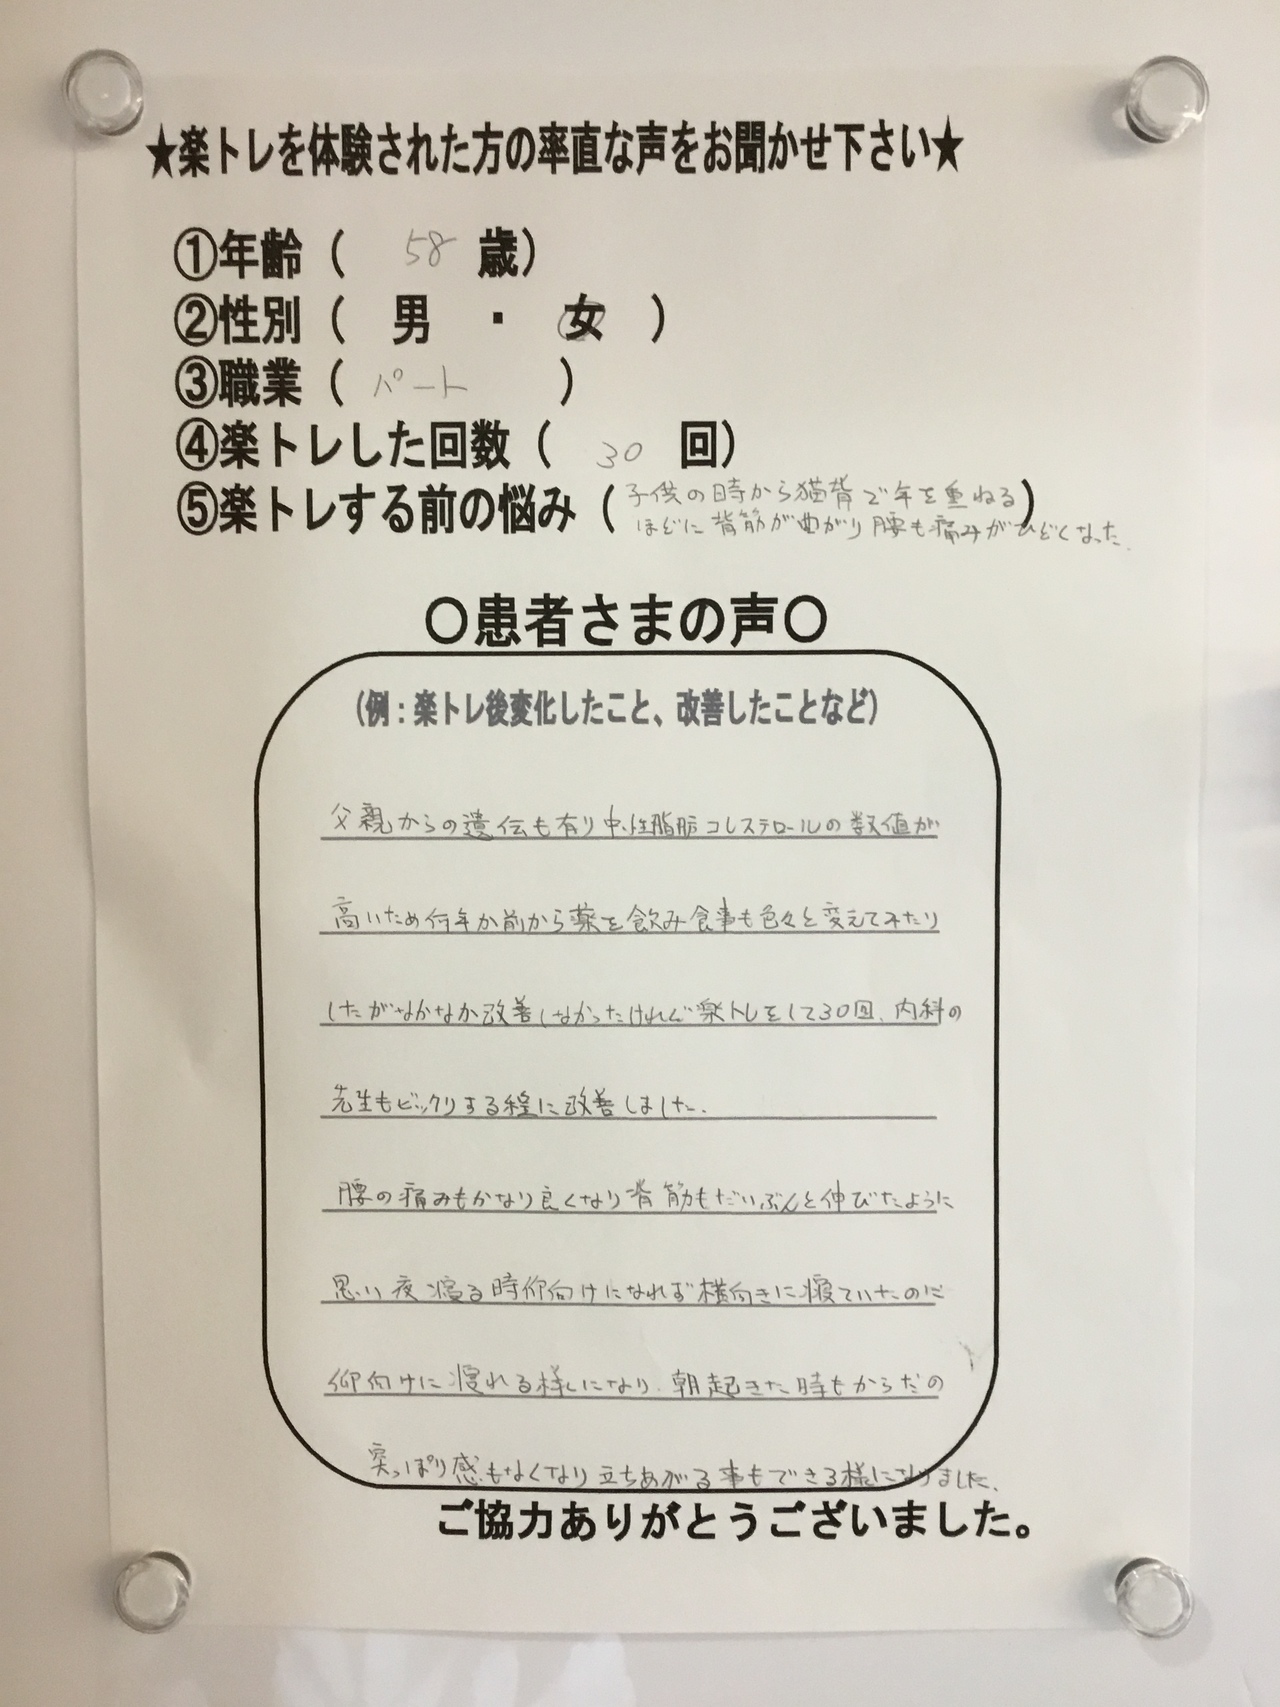 ★楽トレを体験された方の率直な声をお聞かせ下さい★
①年齢（ 58 歳）
②性別（ 男 ・ 女 ）
③職業（ パート ）
④楽トレした回数（ 30 回）
⑤楽トレする前の悩み（子供の時から猫背で年を重ねる）
ほどに背筋が曲がり腰も痛みがひどくなった.
〇患者さまの声〇
（例：楽トレ後変化したこと、改善したことなど）
父親からの遺伝も有り中性脂肪コレステロールの数値が
高いため何年か前から薬を飲み食事も色々と変えてみたり
したがなかなか改善しなかったけれど楽トレをして30回、内科の
先生もビックリする程に改善しました.
腰の痛みもかなり良くなり背筋もだいぶんと伸びたように
思い夜寝る時仰向けになれず横向きに寝ていたのに
仰向けに寝れる様になり、朝起きた時もからだの
突っぱり感もなくなり立ちあがる事もできる様になりました、
ご協力ありがとうございました。